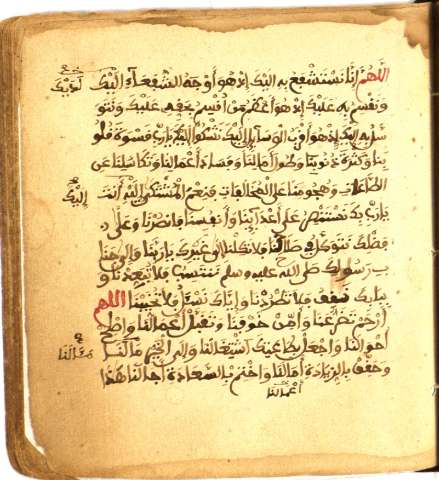 اللهم إنا نستشفع به إليك إذ هو أوجه الشفعاء إليك
ونقسم به عليك إذ هو أعظم من أقسم بحقه عليك ونتو
سل به إليك إذ هو أقرب الوسائل إليك نشكوا إليك يا رب قسوة قلو
بنا وكثرة ذنوبنا وطول آمالنا وفساد أعمالنا وتكاسلنا عن
الطاعات وهجومنا على المخالفات فنعم المشتكى إليه أنت
إليك
يا رب بك نستنصر على أعدائنا وأنفسنا فانصرنا وعلى
فضلك نتوكل في صلاحنا فلا تكلنا إلى غيرك يا ربنا وإلى جنا
ب رسولك صلى الله عليه وسلم ننتسب فلا تبعدنا و
ببابك نقف فلا تطردنا وإياك نسئل فلا تخيبنا اللهم
ارحم تضرعنا وآمن خوفنا وتقبل أعمالنا وأصلح
أحوالنا واجعل بطاعتك اشتغالنا وإلى الخير مآلنا
وحقق بالزيادة آمالنا واختم بالسعادة آجالنا هذا
أعمالنا